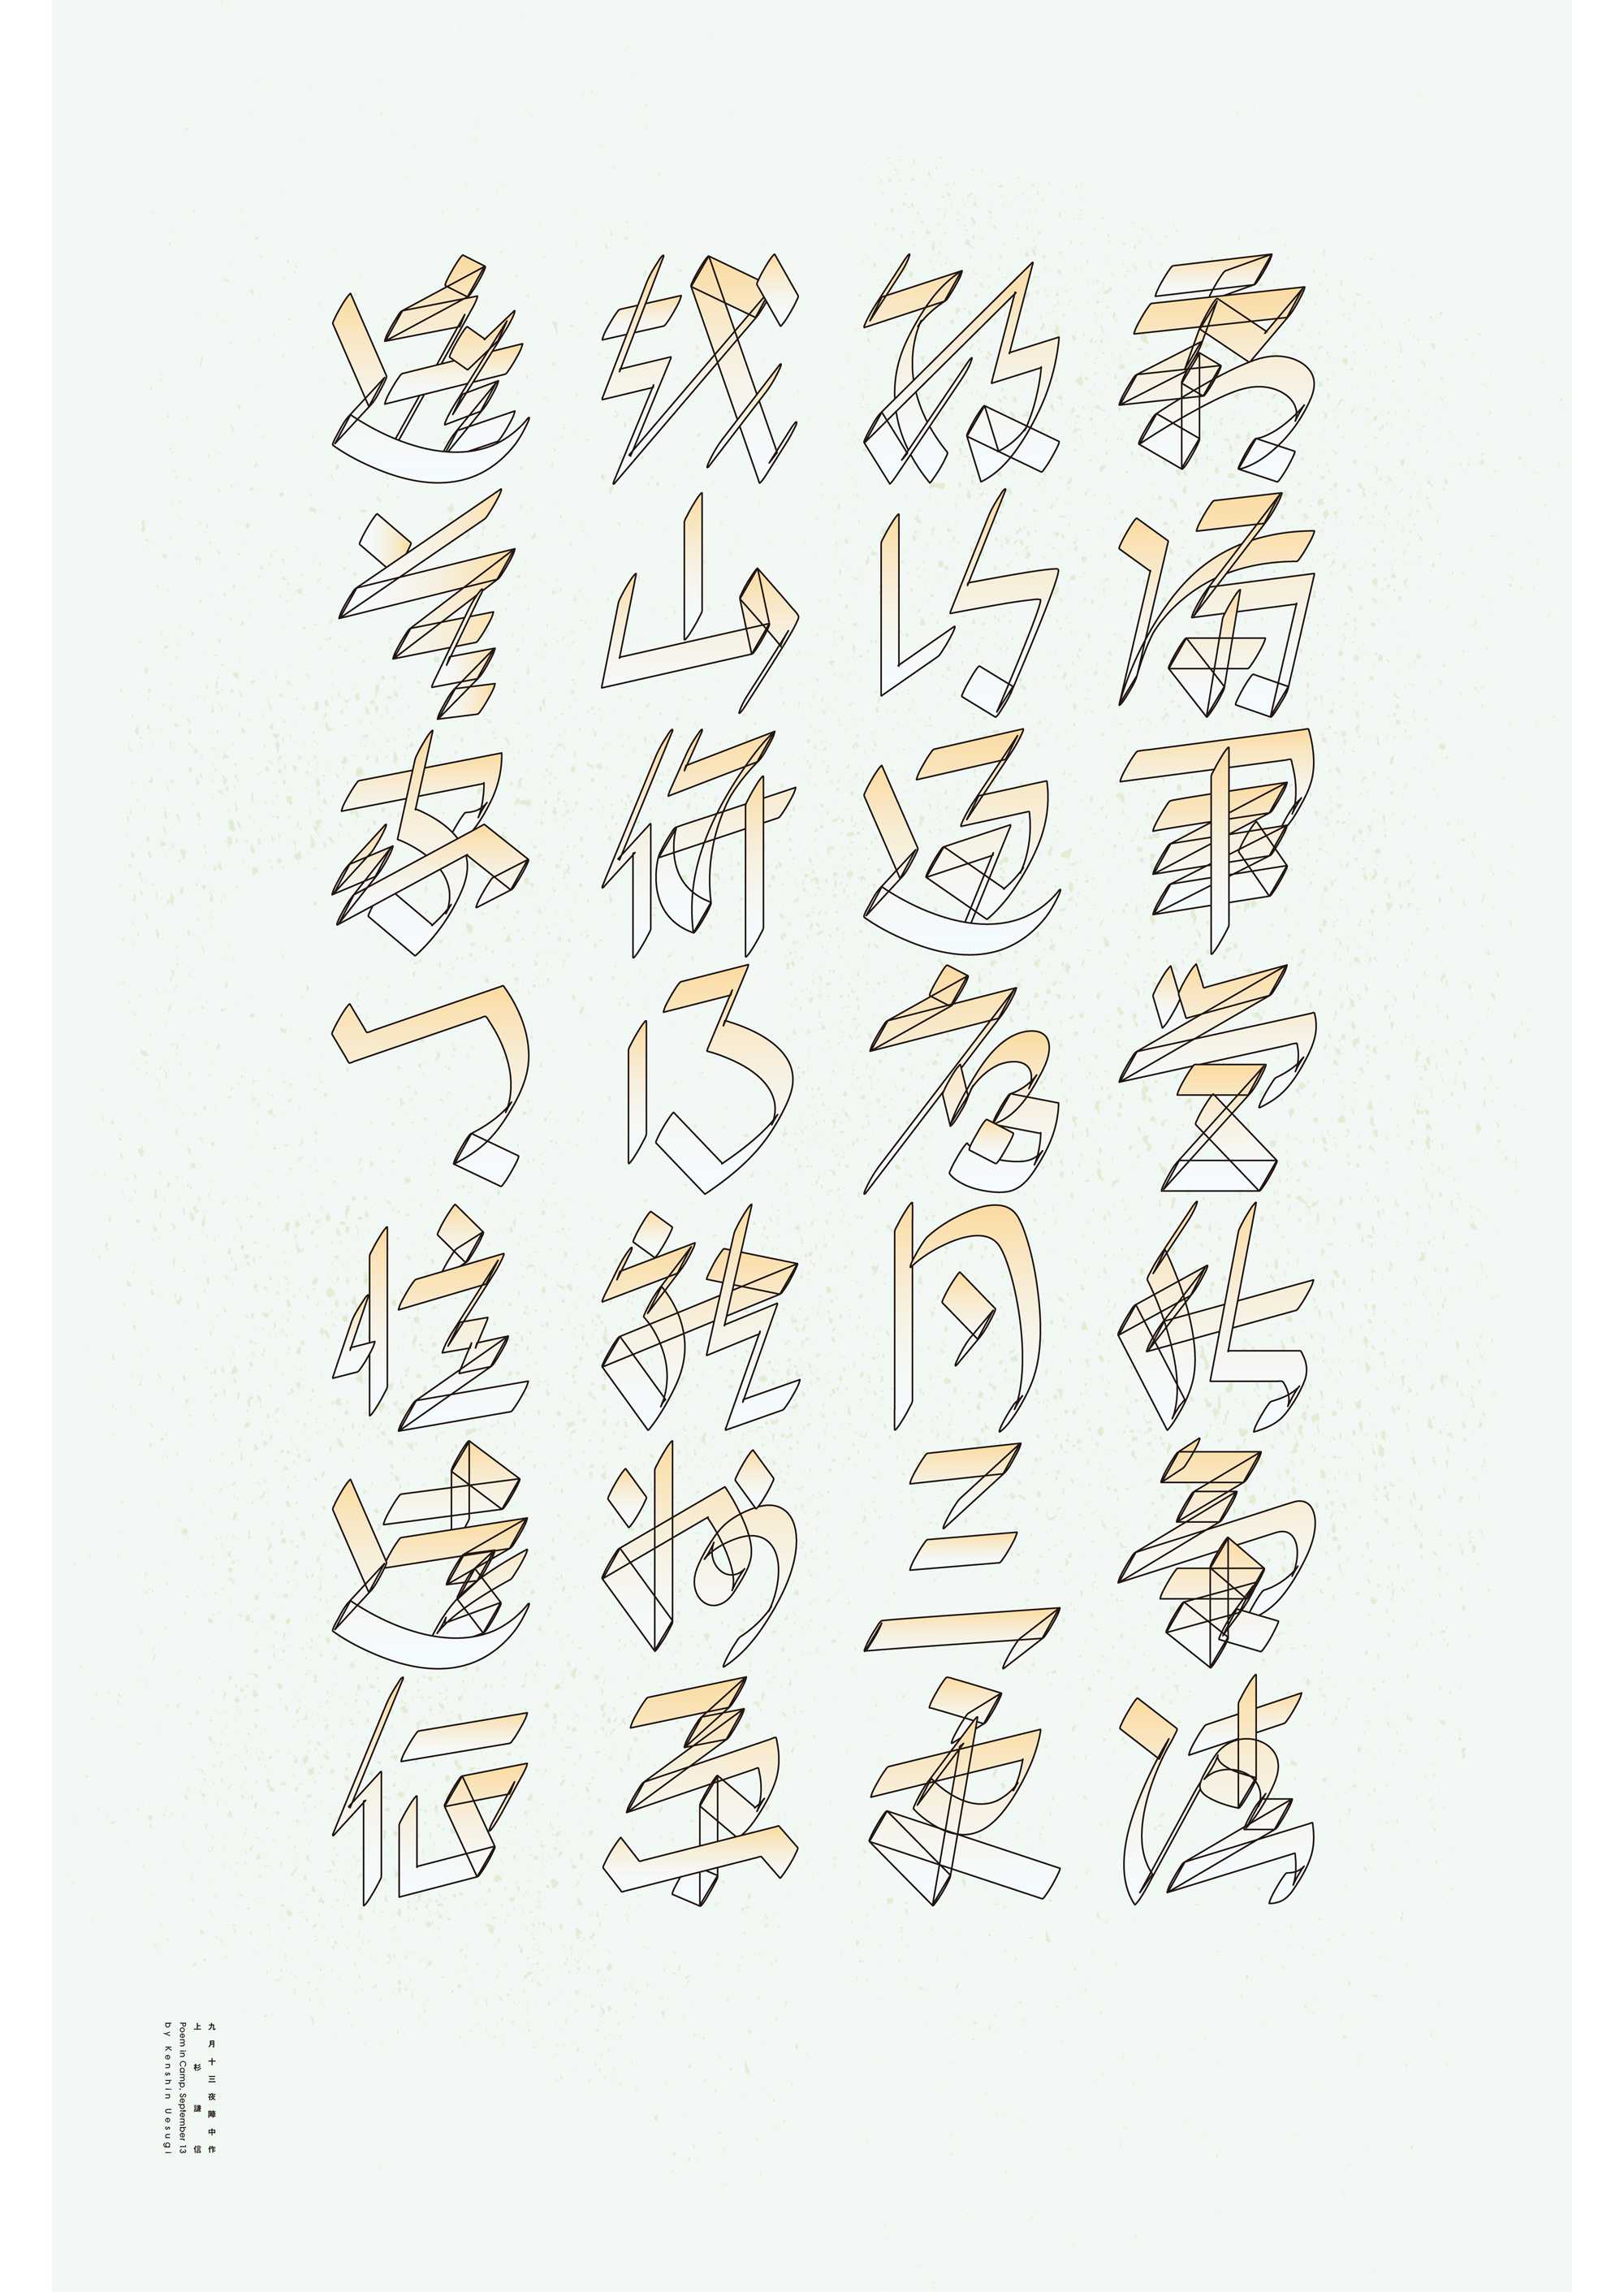 霜満軍営秋気清
数行過雁月三更
越山併得能州景
遮莫家郷憶遠征
九月十三夜陣中作
上杉謙信
Poem in Camp, September 13
by Kenshin Uesugi